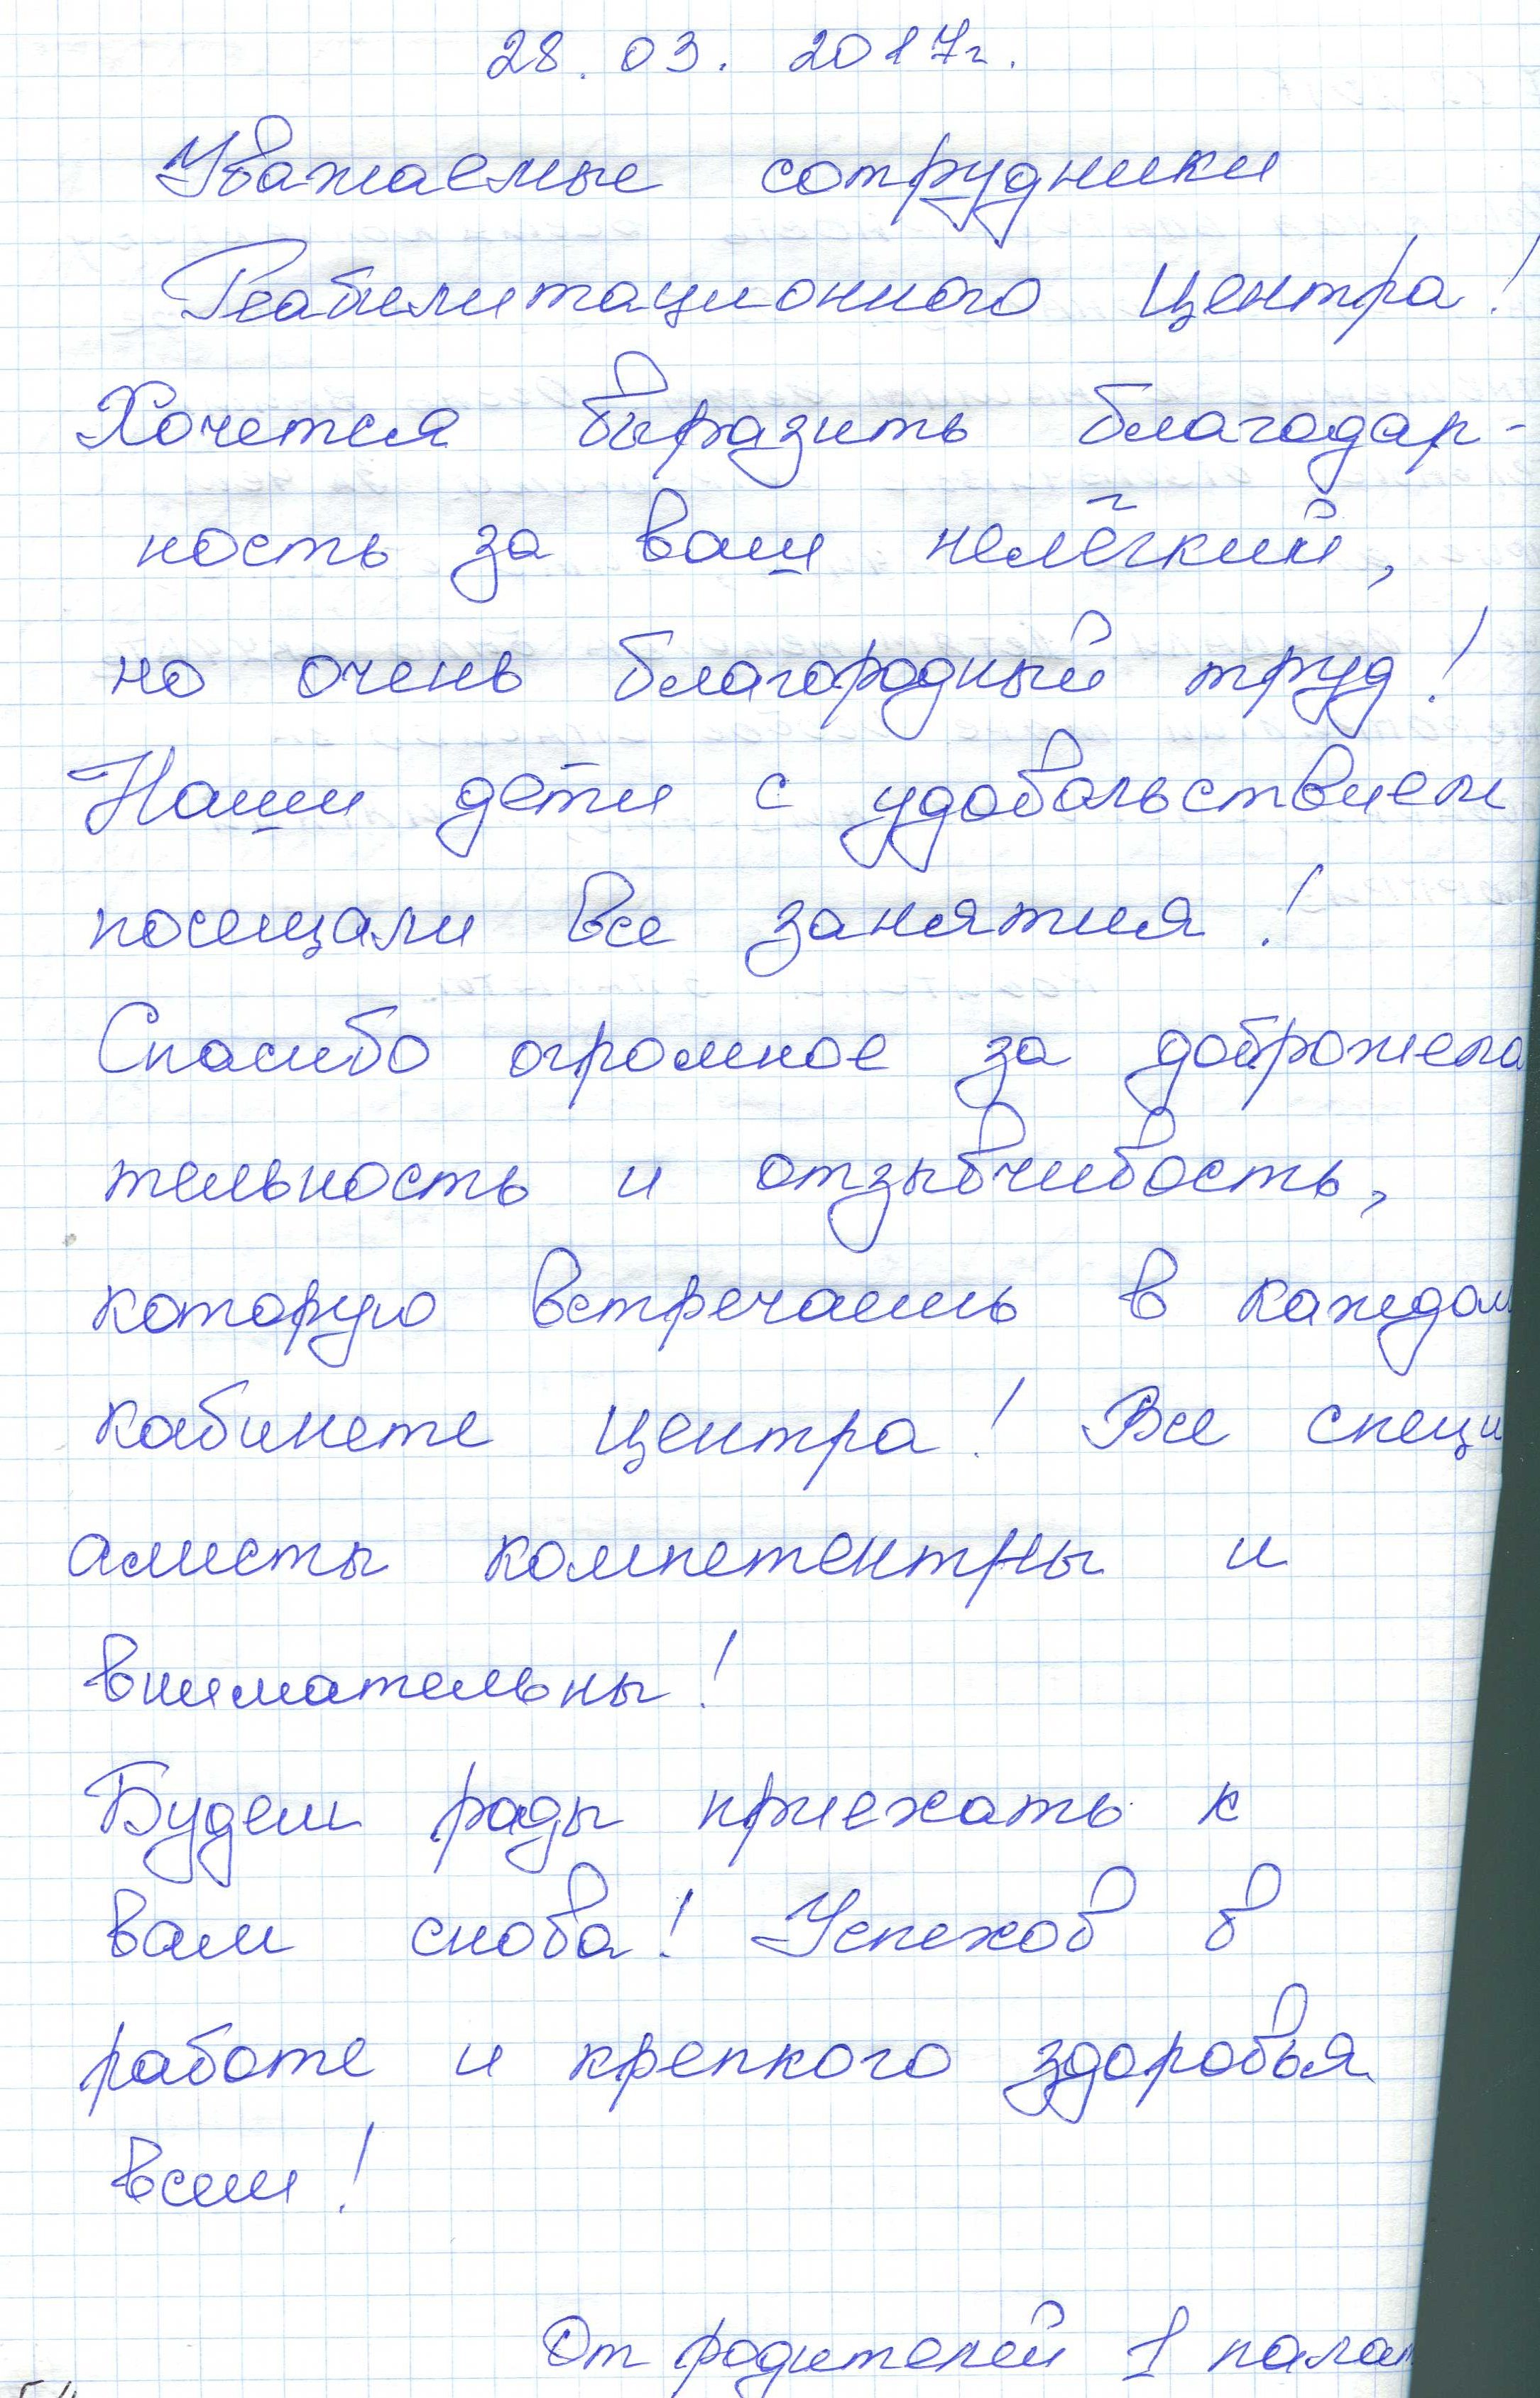 28. 03. 2017г.
Уважаемые сотрудники
Реабилитационного Центра!
Хочется выразить благодар-
ность за ваш нелёгкий,
но очень благородный труд!
Наши дети с удовольствием
посещали все занятия!
Спасибо огромное за доброжела
тельность и отзывчивость,
которую встречаешь в каждом
кабинете Центра! Все специ
алисты компетентны и
внимательны!
Будем рады приехать к
вам снова! Успехов в
работе и крепкого здоровья
всем!
От родителей 1 палат